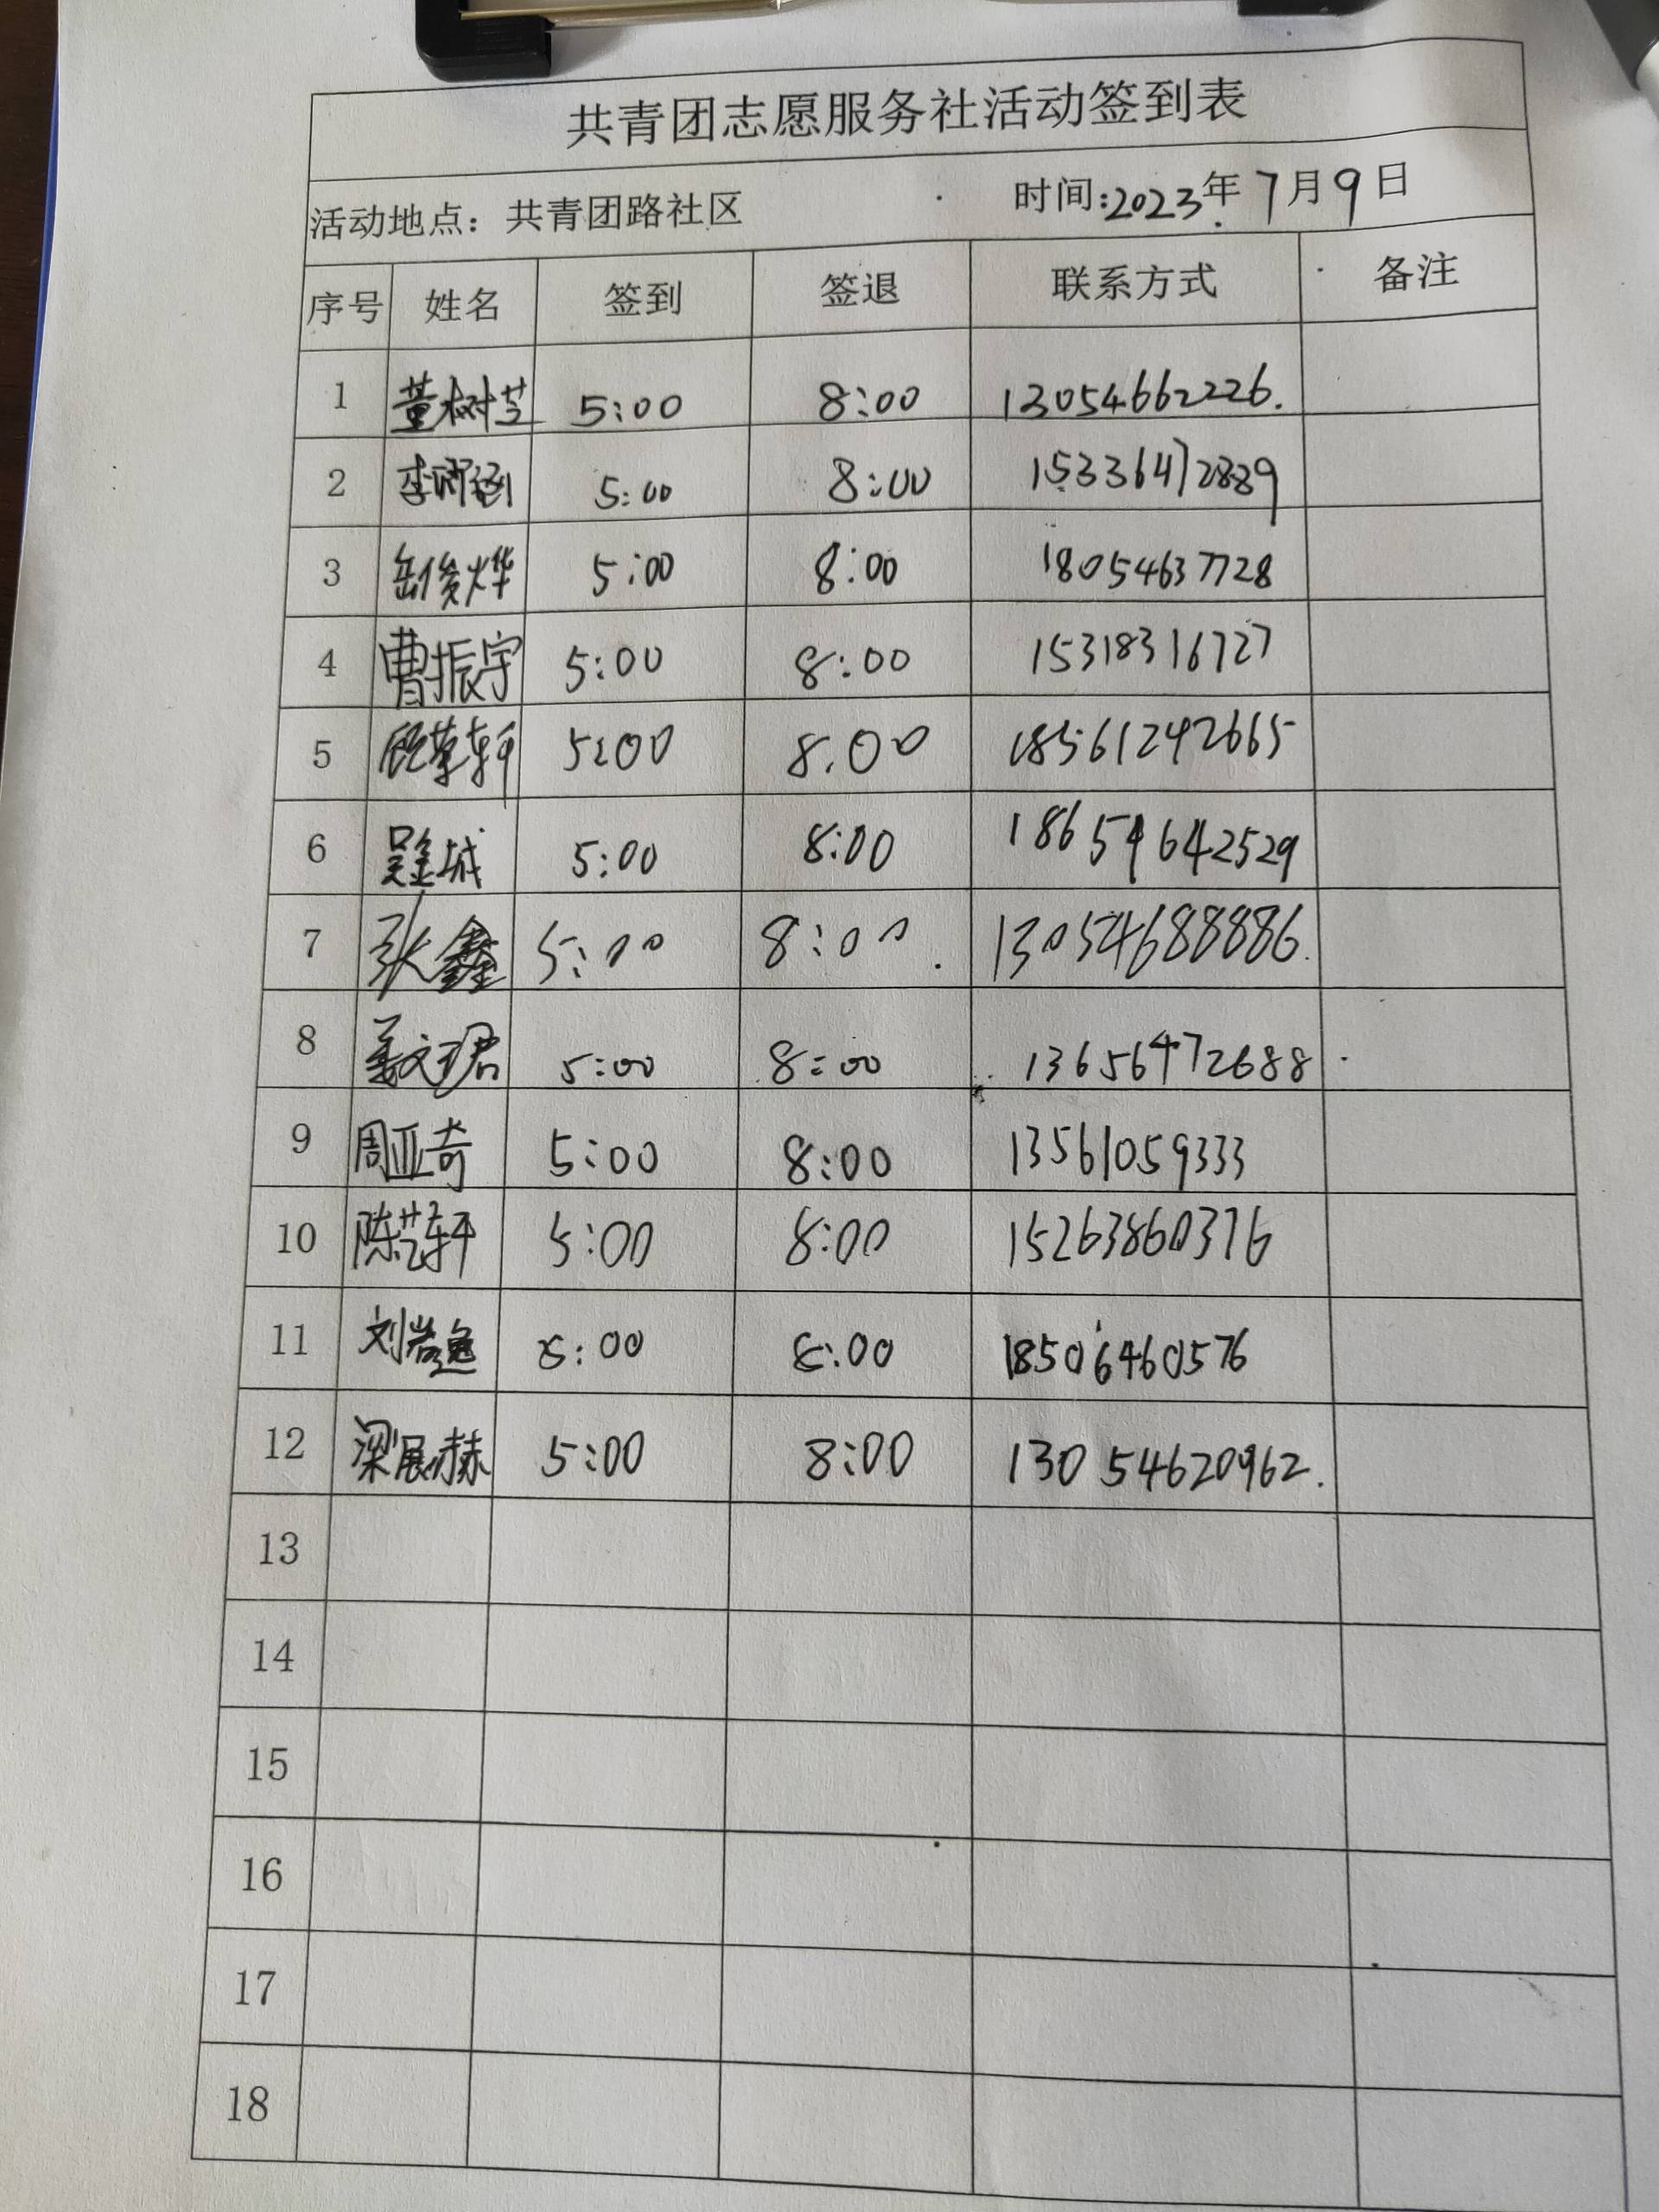 共青团志愿服务社活动签到表
活动地点：共青团路社区 时间:2023年7月9日
序号 姓名 签到 签退 联系方式 备注
1 董树芝 5:00 8:00 13054662226.
2 5:00 8:00 15336472889
3 岳俊烨 5:00 8:00 18054637728
4 曹振宇 5:00 8:00 15318316727
5 5:00 8.00 18561242665
6 5:00 8:00 18654642529
7 张鑫 5:00 8:00 13054688886.
8 姜文珺 5:00 8:00 13656472688
9 周亚奇 5:00 8:00 13561059333
10 陈艺轩 5:00 8:00 15263860376
11 :00 8:00 18506460576
12 梁展赫 5:00 8:00 13054620962.
13
14
15
16
17
18